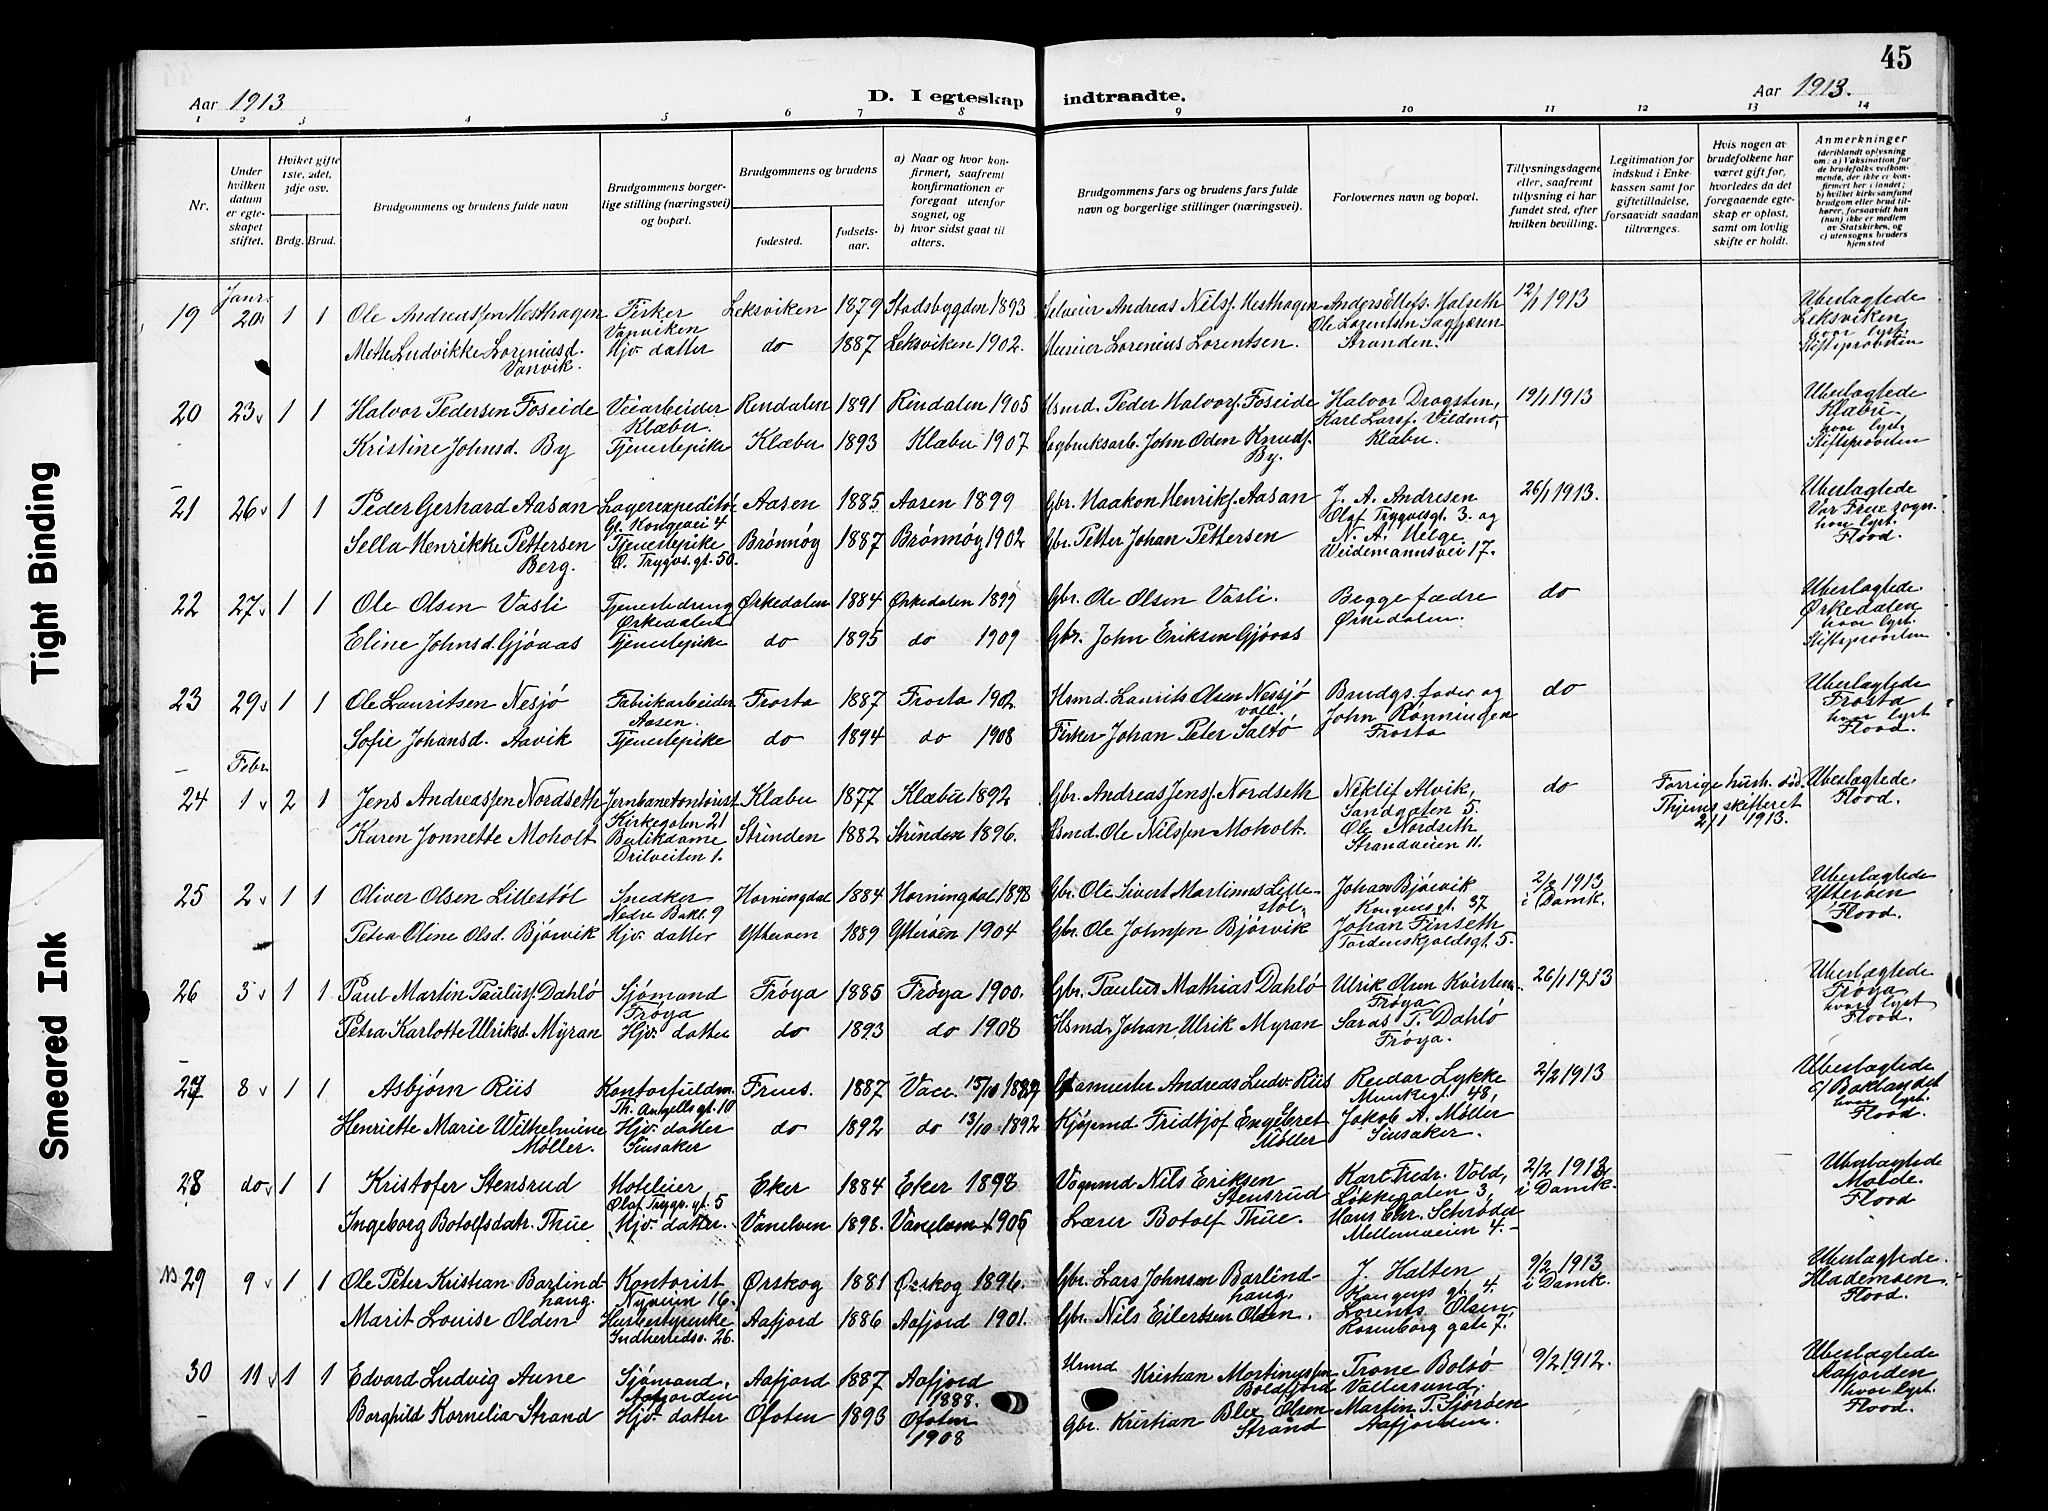 45
Aar 1913
D. I egteskap indtraadte.
Aar 1913.
1 2 3 4 5 6 7 8 9 10 11 12 13 14
Nr.
Under hvilken datum er egteskapet stiftet.
Hvilket gifte 1ste, 2det, 3dje osv.
Brdg. Brud.
Brudgommens og brudens fulde navn
Brudgommens borgerlige stilling (næringsvei) og bopæl.
Brudgommens og brudens
fødested.
fødselsaar.
a) Naar og hvor konfirmert, saafremt konfirmationen er foregaat utenfor sognet, og
b) hvor sidst gaat til alters.
Brudgommens fars og brudens fars fulde navn og borgerlige stillinger (næringsvei).
Forlovernes navn og bopæl.
Tillysningsdagene eller, saafremt tillysning ei har fundet sted, efter hvilken bevilling.
Legitimation for indskud i Enkekassen samt for giftetilladelse, forsaavidt saadan tiltrænges.
Hvis nogen av brudefolkene har været gift før, hvorledes da det foregaaende egteskap er opløst, samt om lovlig skifte er holdt.
Anmerkninger
(deriblandt oplysning om: a) Vaksination for de brudefolks vedkommende, der ikke er konfirmert her i landet; b) hvilket kirkesamfund brudgom eller brud tilhører, forsaavidt han (hun) ikke er medlem av Statskirken, og c) utensogns bruders hjemsted
Janr.
19 20 1 1 Ole Andreassen Hesthagen Fisker Vanviken Leksviken 1879 Stadsbygden 1893 Selveier Andreas Nilss. Hesthagen
Ole Lorentsen
12/1 1913
Ubeslagtede Leksviken hvor lyst. Stiftsprovsten
Mette Ludvikke Loreniusd. Vanvik. Hjv. datter do 1887 Leksviken 1902. Lorenius Lorentsen.
Stranden.
20 23 1 1 Halvor Pedersen Foseide Veiarbeider Klæbu. Rindalen 1891 Rindalen 1905 Husmd. Peder Halvors. Foseide
Halvor Dragsten,
19/1 1913
Ubeslagtede Klæbu hvor lyst. Stiftsprovsten
Kristine Johnsd. By Tjenestepike Klæbu 1893 Klæbu 1907 John Oden Knuds. By.
Klæbu.
21 26 1 1 Peder Gerhard Aasan Lagerexpeditør Gl. Kongevei 4 Aasen 1885 Aasen 1899 Gbr. Haakon Henriks. Aasan
J. A. Andresen Olaf Trygvesgt. 3. og
26/1 1913.
Ubeslagtede Vor Frue sogn. hvor lyst. Flood.
Sella Henrikke Pettersen Berg. Tjenestepike O. Trygvs. gt. 50. Brønnøy 1887 Brønnøy 1902 Gbr. Petter Johan Pettersen
N. A. Helge. Weidemannsvei 17.
22 27 1 1 Ole Olsen Vasli Tjenestedreng Ørkedalen Ørkedalen 1884 Ørkedalen 1899 Gbr. Ole Olsen Vasli.
Begge fædre Ørkedalen.
do
Ubeslagtede Ørkedalen hvor lyst. Stiftsprovsten
Eline Johnsd. Gjønaas Tjenestepike do 1895 do 1909 Gbr. John Eriksen Gjønaas
23 29 1 1 Ole Lauritsen Nesjø Fabrikarbeider Aasen. Frosta 1887 Frosta 1902 Husmd. Laurits Olsen Nessjø
Brudgs. fader og
do
Ubeslagtede Frosta hvor lyst Flood.
Sofie Johansd. Aavik Tjenestepike do 1894 do 1908 Fisker Johan Peter Saltø
John Rønningen Frosta
Febr.
24 1 2 1 Jens Andreassen Nordseth Jernbanekontorist Kirkegaten 21 Klæbu 1877 Klæbu 1892 Gbr. Andreas Jenss. Nordseth
Neklif Alvik, Sandgaten 5.
do
Forrige hustr. død. skifteret 2/1 1913.
Ubeslagtede. Flood.
Karen Jonnette Moholt Butikdame Strinden 1882 Strinden 1896. Husmd. Ole Nilssen Moholt.
Ole Nordseth Strandveien 11.
25 2 1 1 Oliver Olsen Lillestøl Snedker Nedre Bakl. 9 Horningdal 1884 Horningdal 1898 Gbr. Ole Sivert Martinus Lillestøl.
Johan Bjørvik Kongensgt. 37
2/2 1913 i Domk.
Ubeslagtede Ytterøen Flood.
Petra Oline Olsd. Bjørvik Hjv. datter Ytterøen 1889 Ytterøen 1904 Gbr. Ole Johnsen Bjørvik
Johan Finseth Tordenskjoldsgt. 5.
26 3 1 1 Paul Martin Pauluss. Dahlø Sjømand Frøya Frøya 1885 Frøya 1900. Gbr. Paulus Mathias Dahlø
Ulrik Olsen Frøya
26/1 1913
Ubeslægtede Frøya hvor lyst Flood.
Petra Karlotte Ulriksd. Myran Hjv. datter do 1893 do 1908 Hsmd. Johan Ulrik Myran
P. Dahlø Frøya.
27 8 1 1 Asbjørn Riis Kontorfuldm. Th. Angellsgt. 10 Frues. 1887 Vacc. 15/10 Andreas Ludv. Riis
Reidar Lykke Munkegt. 48,
2/2 1913
Ubeslagtede Baklandet hvor lyst. Flood.
Henriette Marie Wilhelmine Møller. Hjv. datter Sinsaker do 1892 do 13/10 1892 Kjøpmd Fridtjof Engebret Møller
Jakob A. Møller Sinsaker.
28 do 1 1 Kristofer Stensrud Hoteleier Olaf Trygv. gt. 5 Eker 1884 Eker 1898 Vognmd Nils Eriksen Stensrud
Karl Fredr. Vold, Løkkegaten 3,
2/2 1913 i Domk.
Ubeslagtede Molde. Flood
Ingeborg Botolfsdatr. Thue Hjv. datter. Vanelven 1898. Vanelven 1905 Lærer Botolf Thue.
Hans Chr. Schrøder Mellemveien 4.
29 9 1 1 Ole Peter Kristian Barlindhaug. Kontorist Nyveien 16. Ørskog 1881 Ørskog 1896. Gbr. Lars Johnsen Barlindhaug.
J. Halten Kongens gt. 4.
9/2 1913 i Domk.
Ubeslagtede. Hlademoen. Flood.
Marit Louise Olden Husbestyrerike Indherredsv. 26. Aafjord 1886 Aafjord 1901. Gbr. Nils Eilertsen Olden.
Lorents Olsen Rosenborg gate 7.
30 11 1 1 Edvard Ludvig Aune Sjømand. Aafjorden Aafjord 1887 Aafjord 1888. Kristian Mortinussen Boldfjord
Trone Bolsø Vallersund.
9/2 1912.
Ubeslagtede Aafjorden hvor lyst. Flood.
Borghild Kornelia Strand Hjv. datter Ofoten 1893 Ofoten 1908 Gbr. Kristian Blix Olsen Strand
Martin P. Sjørøen Aafjorden.
Tight Binding
Smeared Ink